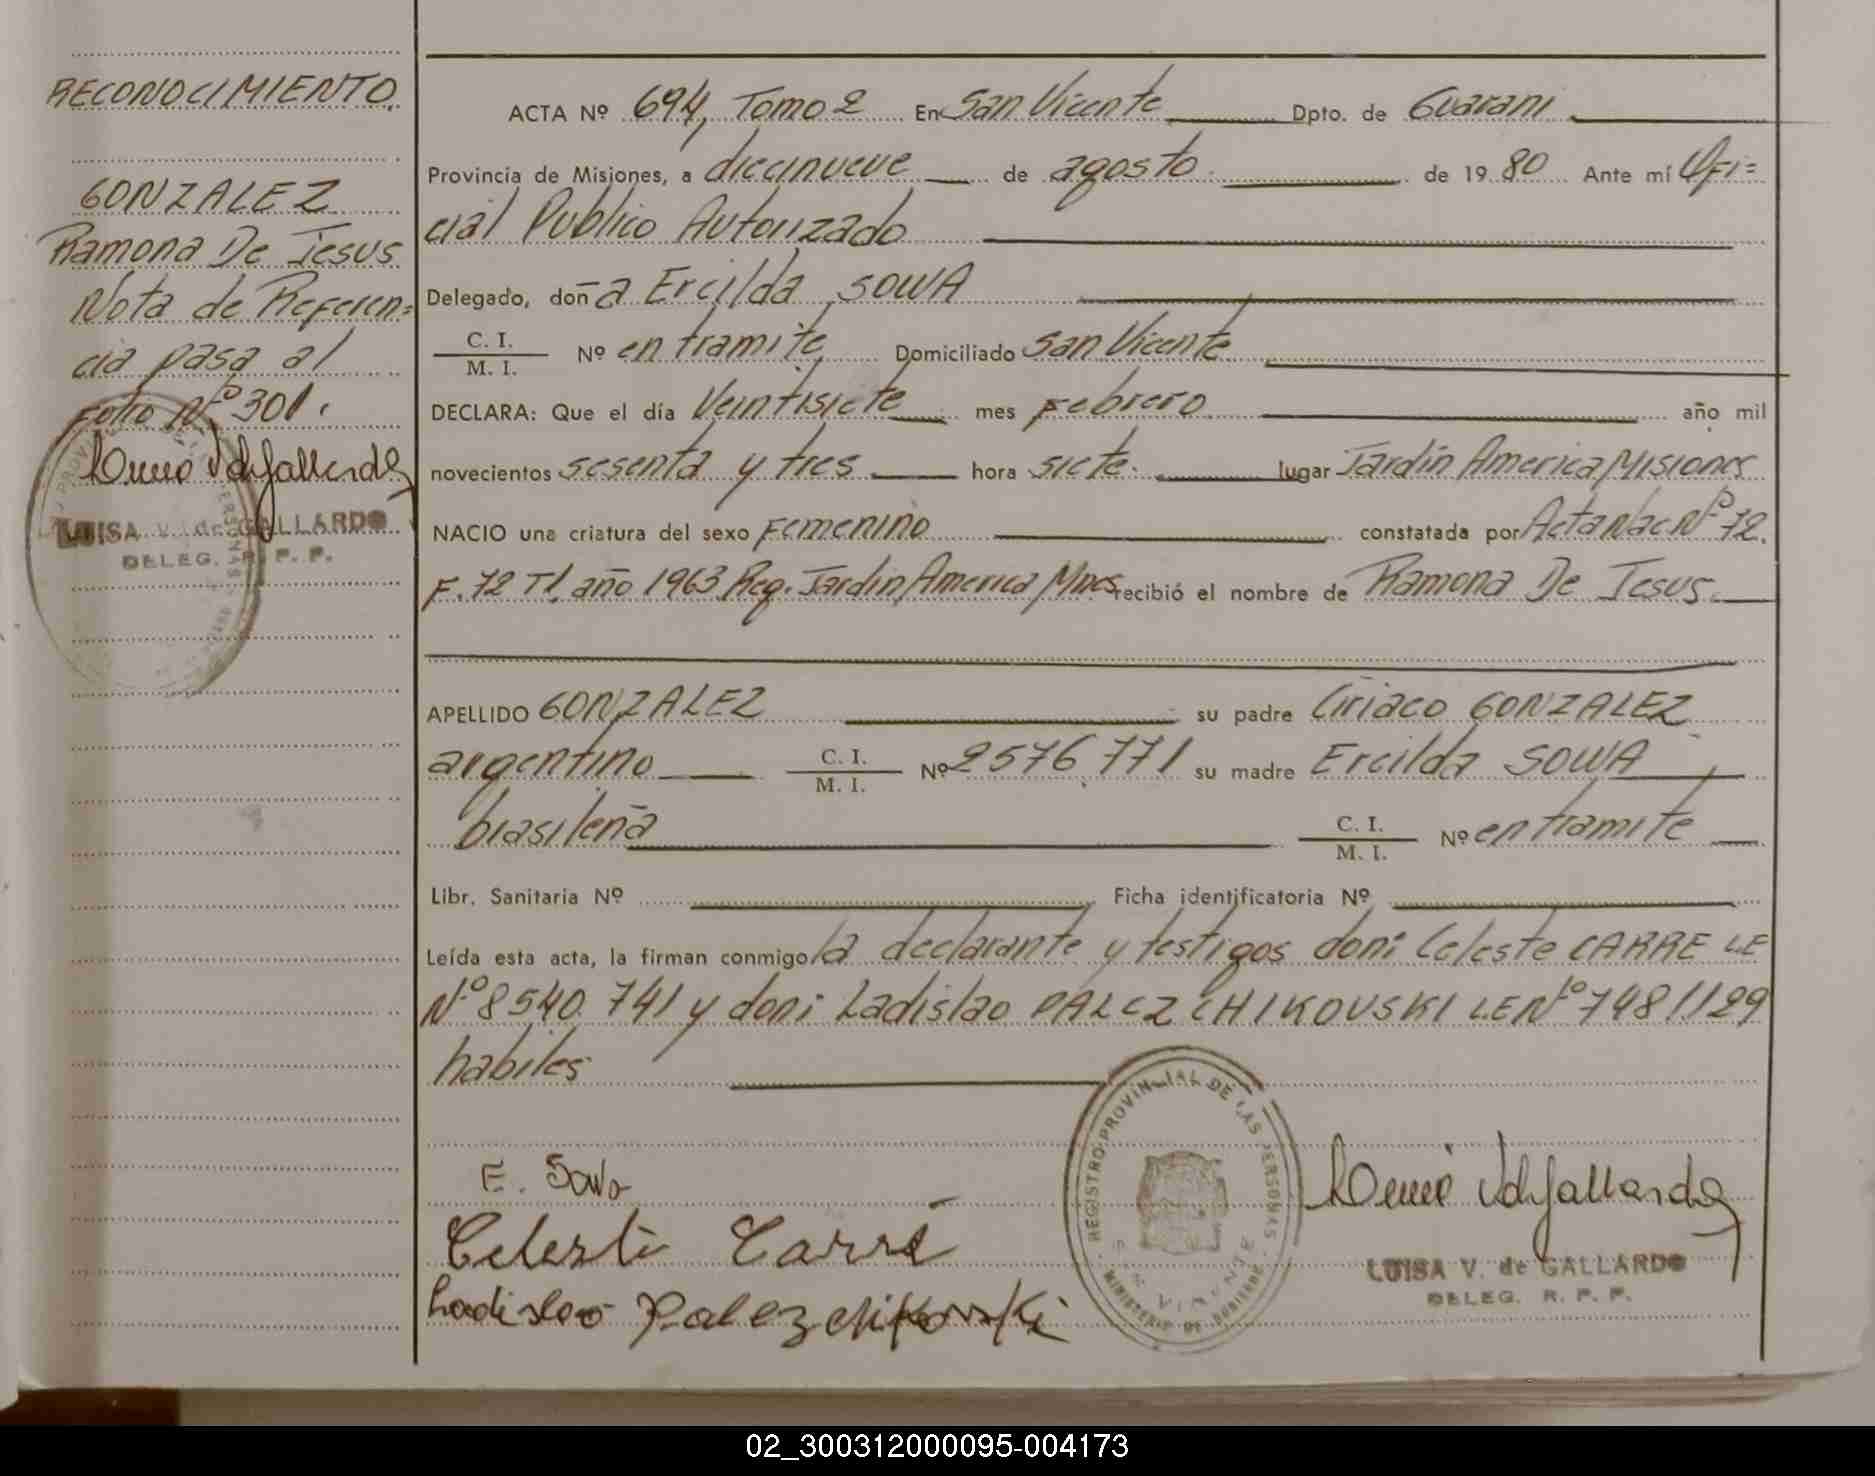 RECONOCIMIENTO.
GONZALEZ
Ramona De Jesus
Nota de Referen=
cia pasa al
Folio Nº 301.
LUISA V. de GALLARDO
DELEG. R. P. P.
ACTA Nº 694, Tomo 2 En San Vicente Dpto. de Guarani
Provincia de Misiones, a diecinueve de agosto de 1980 Ante mí Ofi=
cial Publico Autorizado
Delegado, doña Ercilda SOWA
C. I.
M. I. Nº en tramite Domiciliado San Vicente
DECLARA: Que el día Veintisiete mes Febrero año mil
novecientos sesenta y tres hora siete. lugar Jardin America Misiones
NACIO una criatura del sexo Femenino constatada por Acta Nac Nº 72.
F. 72 T1. año 1963 Reg. Jardin America Mnes recibió el nombre de Ramona De Jesus.
APELLIDO GONZALEZ su padre Ciriaco GONZALEZ
argentino C. I.
M. I. Nº 2576.771 su madre Ercilda SOWA
brasileña C. I.
M. I. Nº en tramite
Libr. Sanitaria Nº Ficha identificatoria Nº
Leída esta acta, la firman conmigo la declarante y testigos don: Celeste CARRE LE
Nº 8540.741 y don: Ladislao PALCZCHIKOVSKI LE Nº 7481129
habiles
E. Sowa
Celeste Carré
Ladislao Palczchikovski
REGISTRO PROVINCIAL DE LAS PERSONAS
MINISTERIO DE GOBIERNO
LUISA V. de GALLARDO
DELEG. R. P. P.
02_300312000095-004173